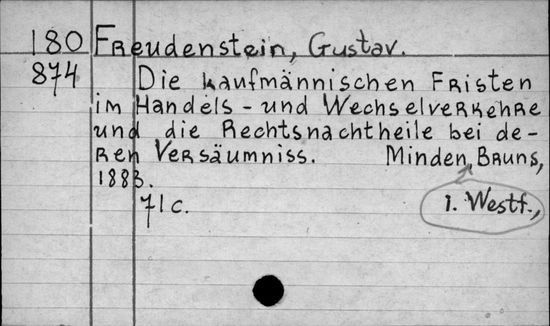 180 Freudenstein, Gustav.
874 Die kaufmännischen Fristen
im Handels- und Wechselverkehre
und die Rechtsnachtheile bei de-
ren Versäumniss. Minden, Bruns,
1883.
71c. i. Westf.,